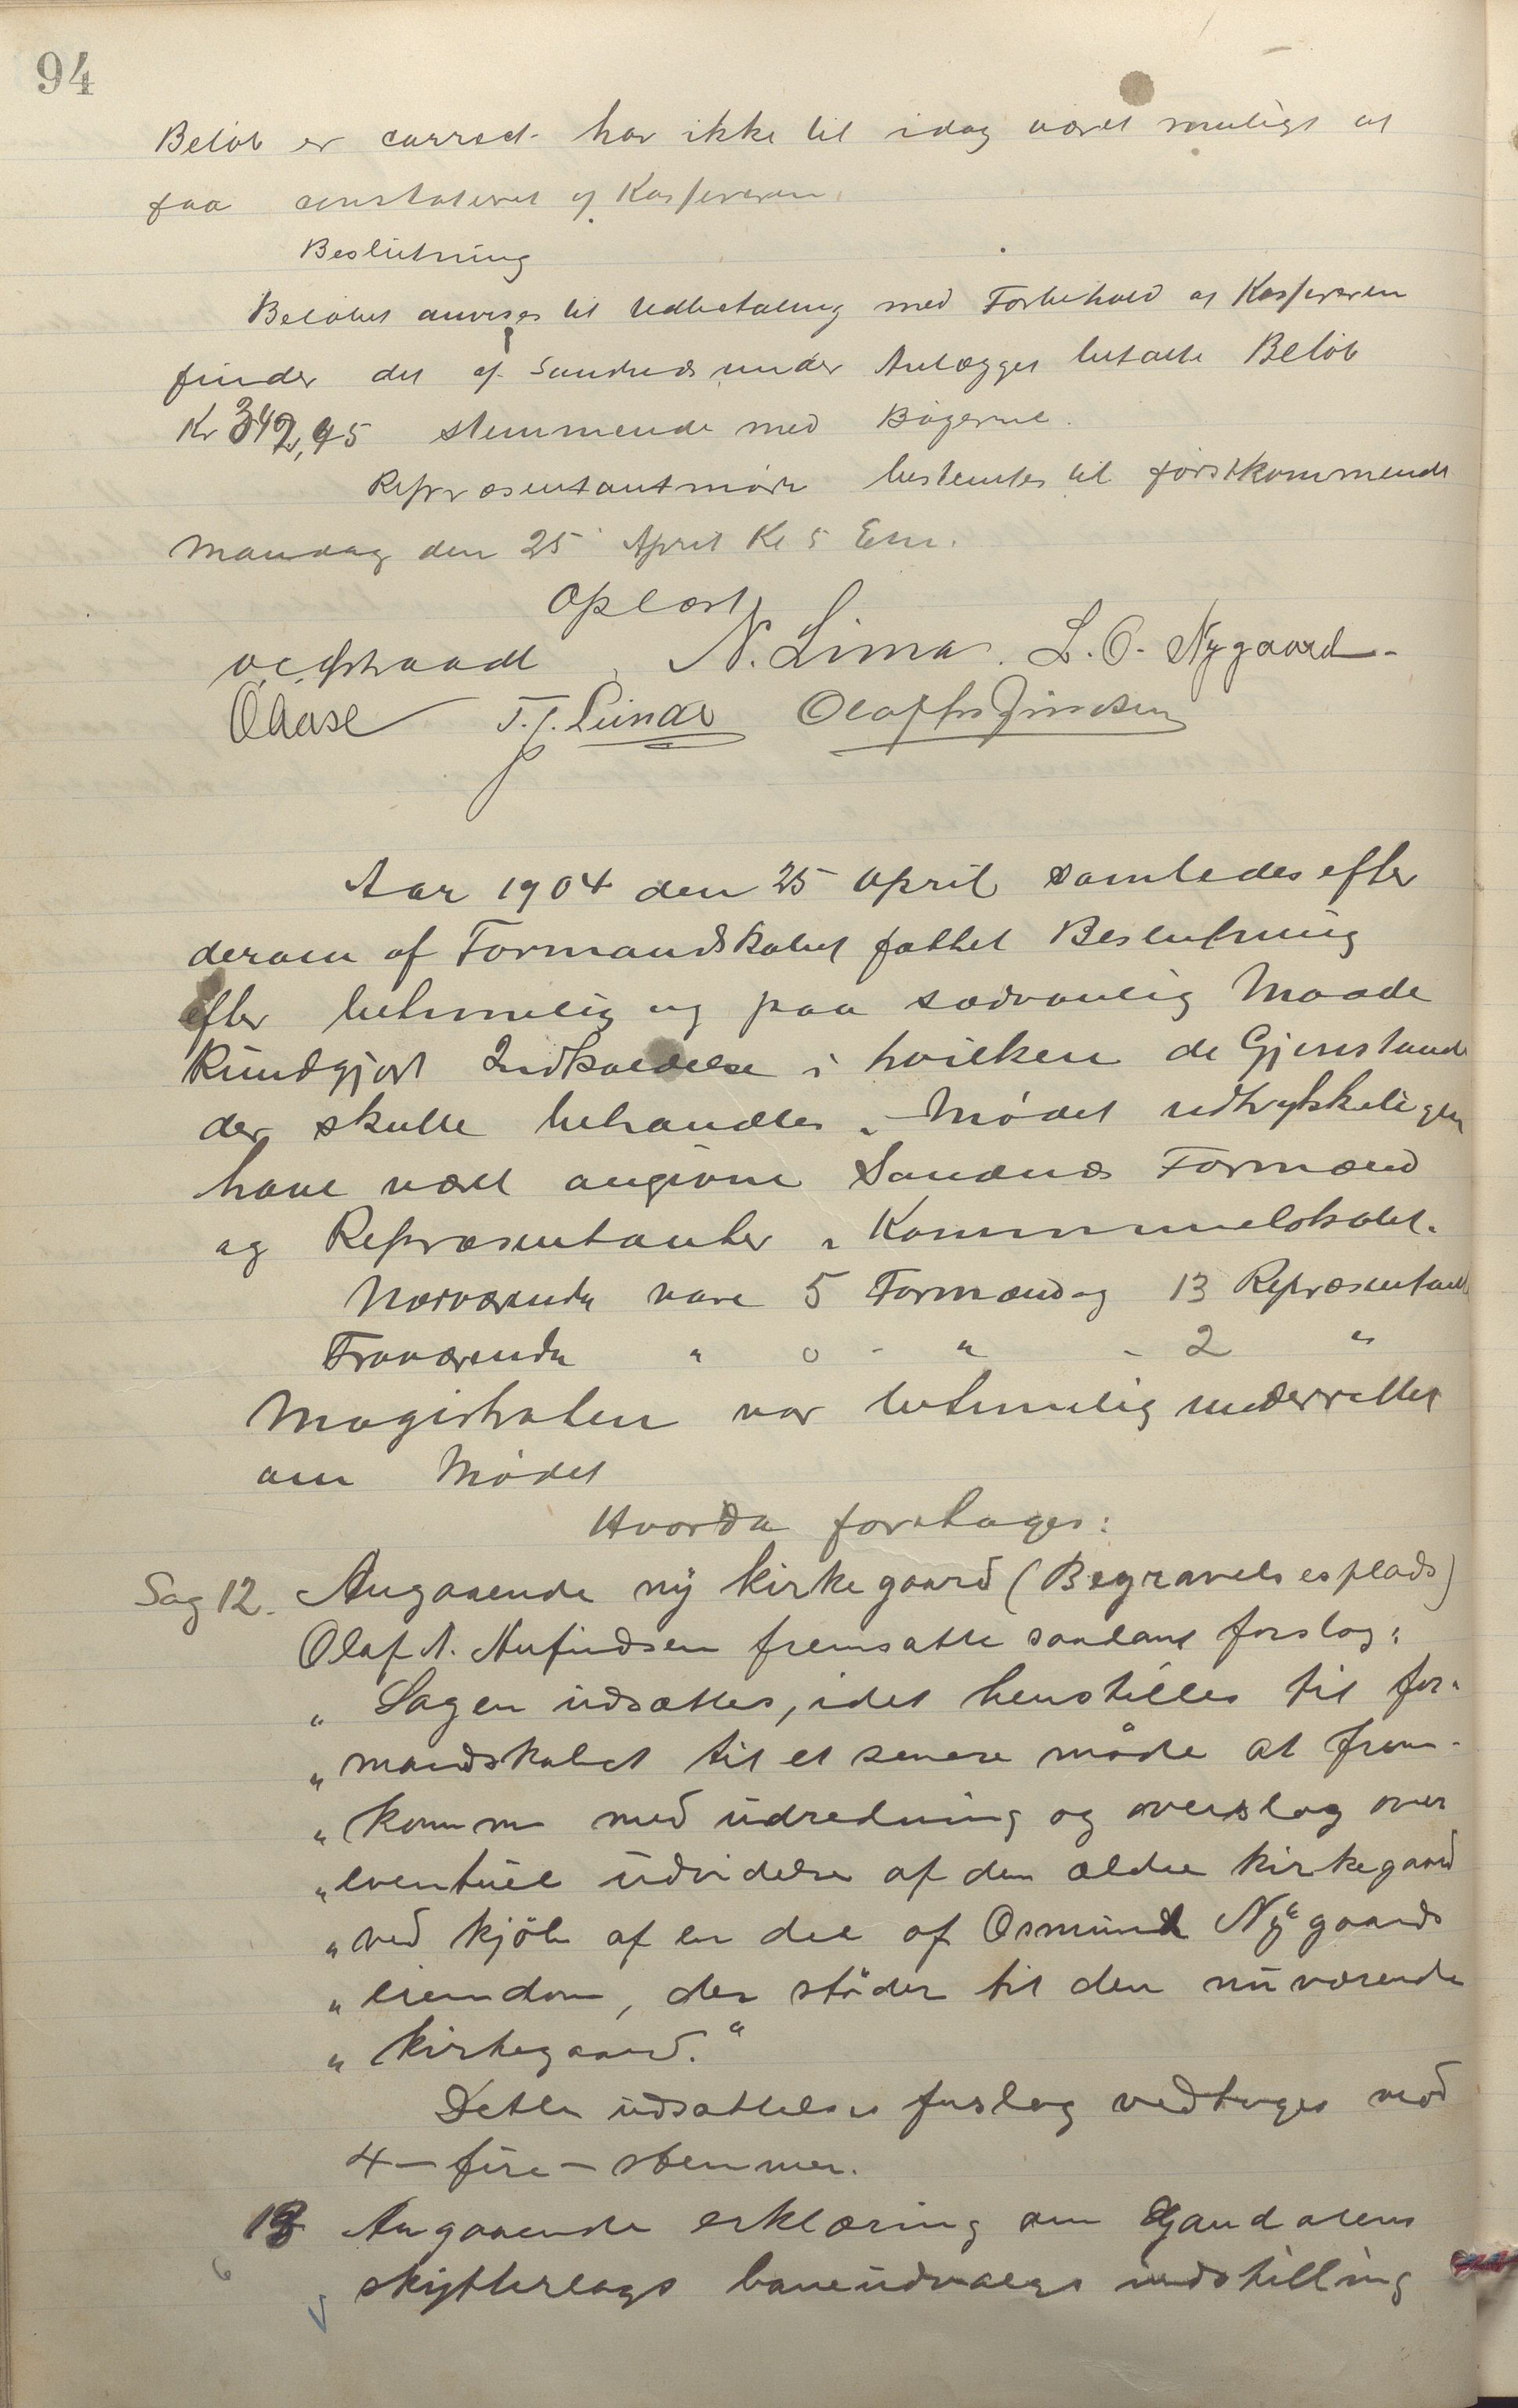 94
Beløb er correct har ikke til idag været muligt at
faa constateret af Kassereren.
Beslutning
Beløbet anvises til Udbetaling med Forbehold at Kassereren
finder det af Sandnes under Anlægget betalte Beløb
Kr 342,45 stemmende med Bøgerne.
Repræsentantmøde bestemtes til førstkommende
Mandag den 25 April Kl 5 Em.
Oplæst
N. Lima. L. O. Nygaard
O Aase T. T. Lunde
Aar 1904 den 25 April samledes efter
derom af Formandskabet fattet Beslutning
efter betimelig og paa sædvanlig Maade
kundgjort Indkaldelse i hvilken de Gjenstande
der skulle behandles i Mødet udtrykkeligen
have været angivne Sandnes Formænd
og Repræsentanter i Kommunelokalet.
Nærværende vare 5 Formænd og 13 Repræsentanter
Fraværende " 0 - " - 2 "
Magistraten var betimelig underrettet
om Mødet
Hvorda foretages:
Sag 12. Angaaende ny kirkegaard (Begravelsesplads)
Olaf A. Aufindsen fremsatte saadant forslag:
" Sagen udsættes, idet henstilles til for-
" mandskabet til et senere møde at frem-
" komme med udredning og overslag over
" eventuel udvidelse af den ældre kirkegaard
" ved kjöb af en del af Osmund Nygaards
" eiendom, der stöder til den nuværende
" kirkegaard."
Dette udsættelsesforslag vedtoges mod
4 - fire - stemmer.
13 Angaaende erklæring om Gandalens
skytterlags baneudvalgs indstilling